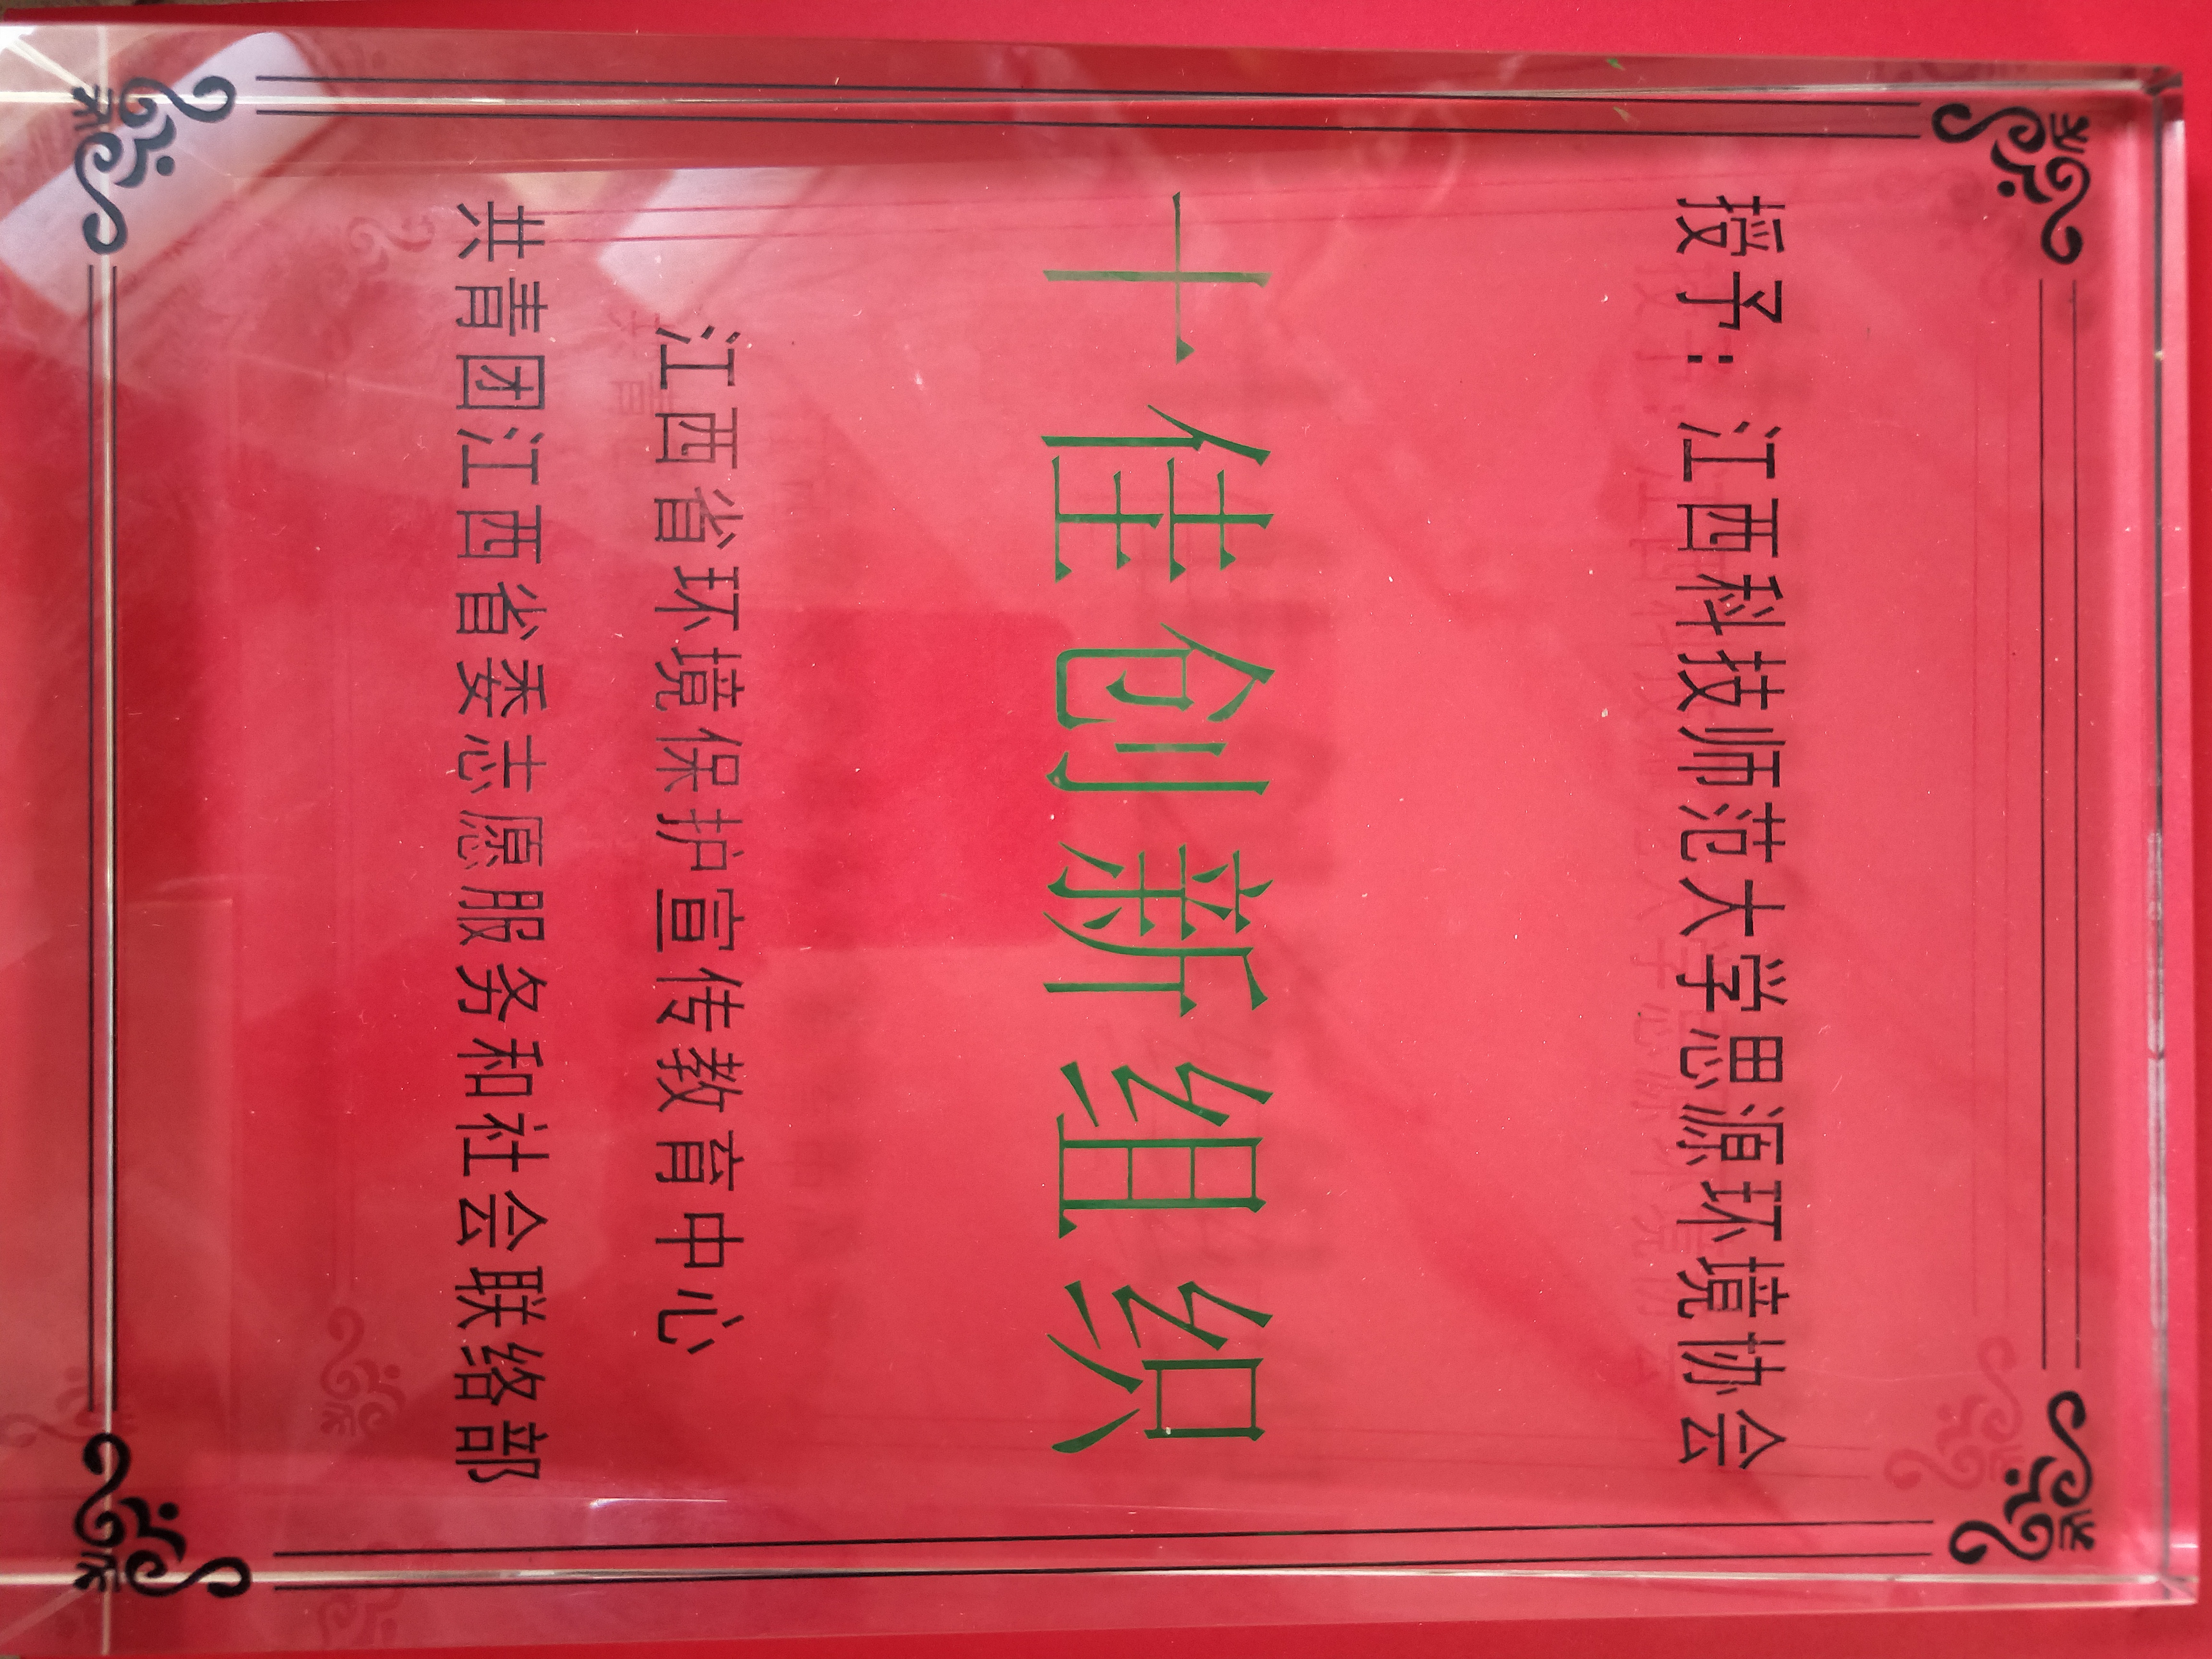 授予：江西科技师范大学思源环境协会
十佳创新组织
江西省环境保护宣传教育中心
共青团江西省委志愿服务和社会联络部